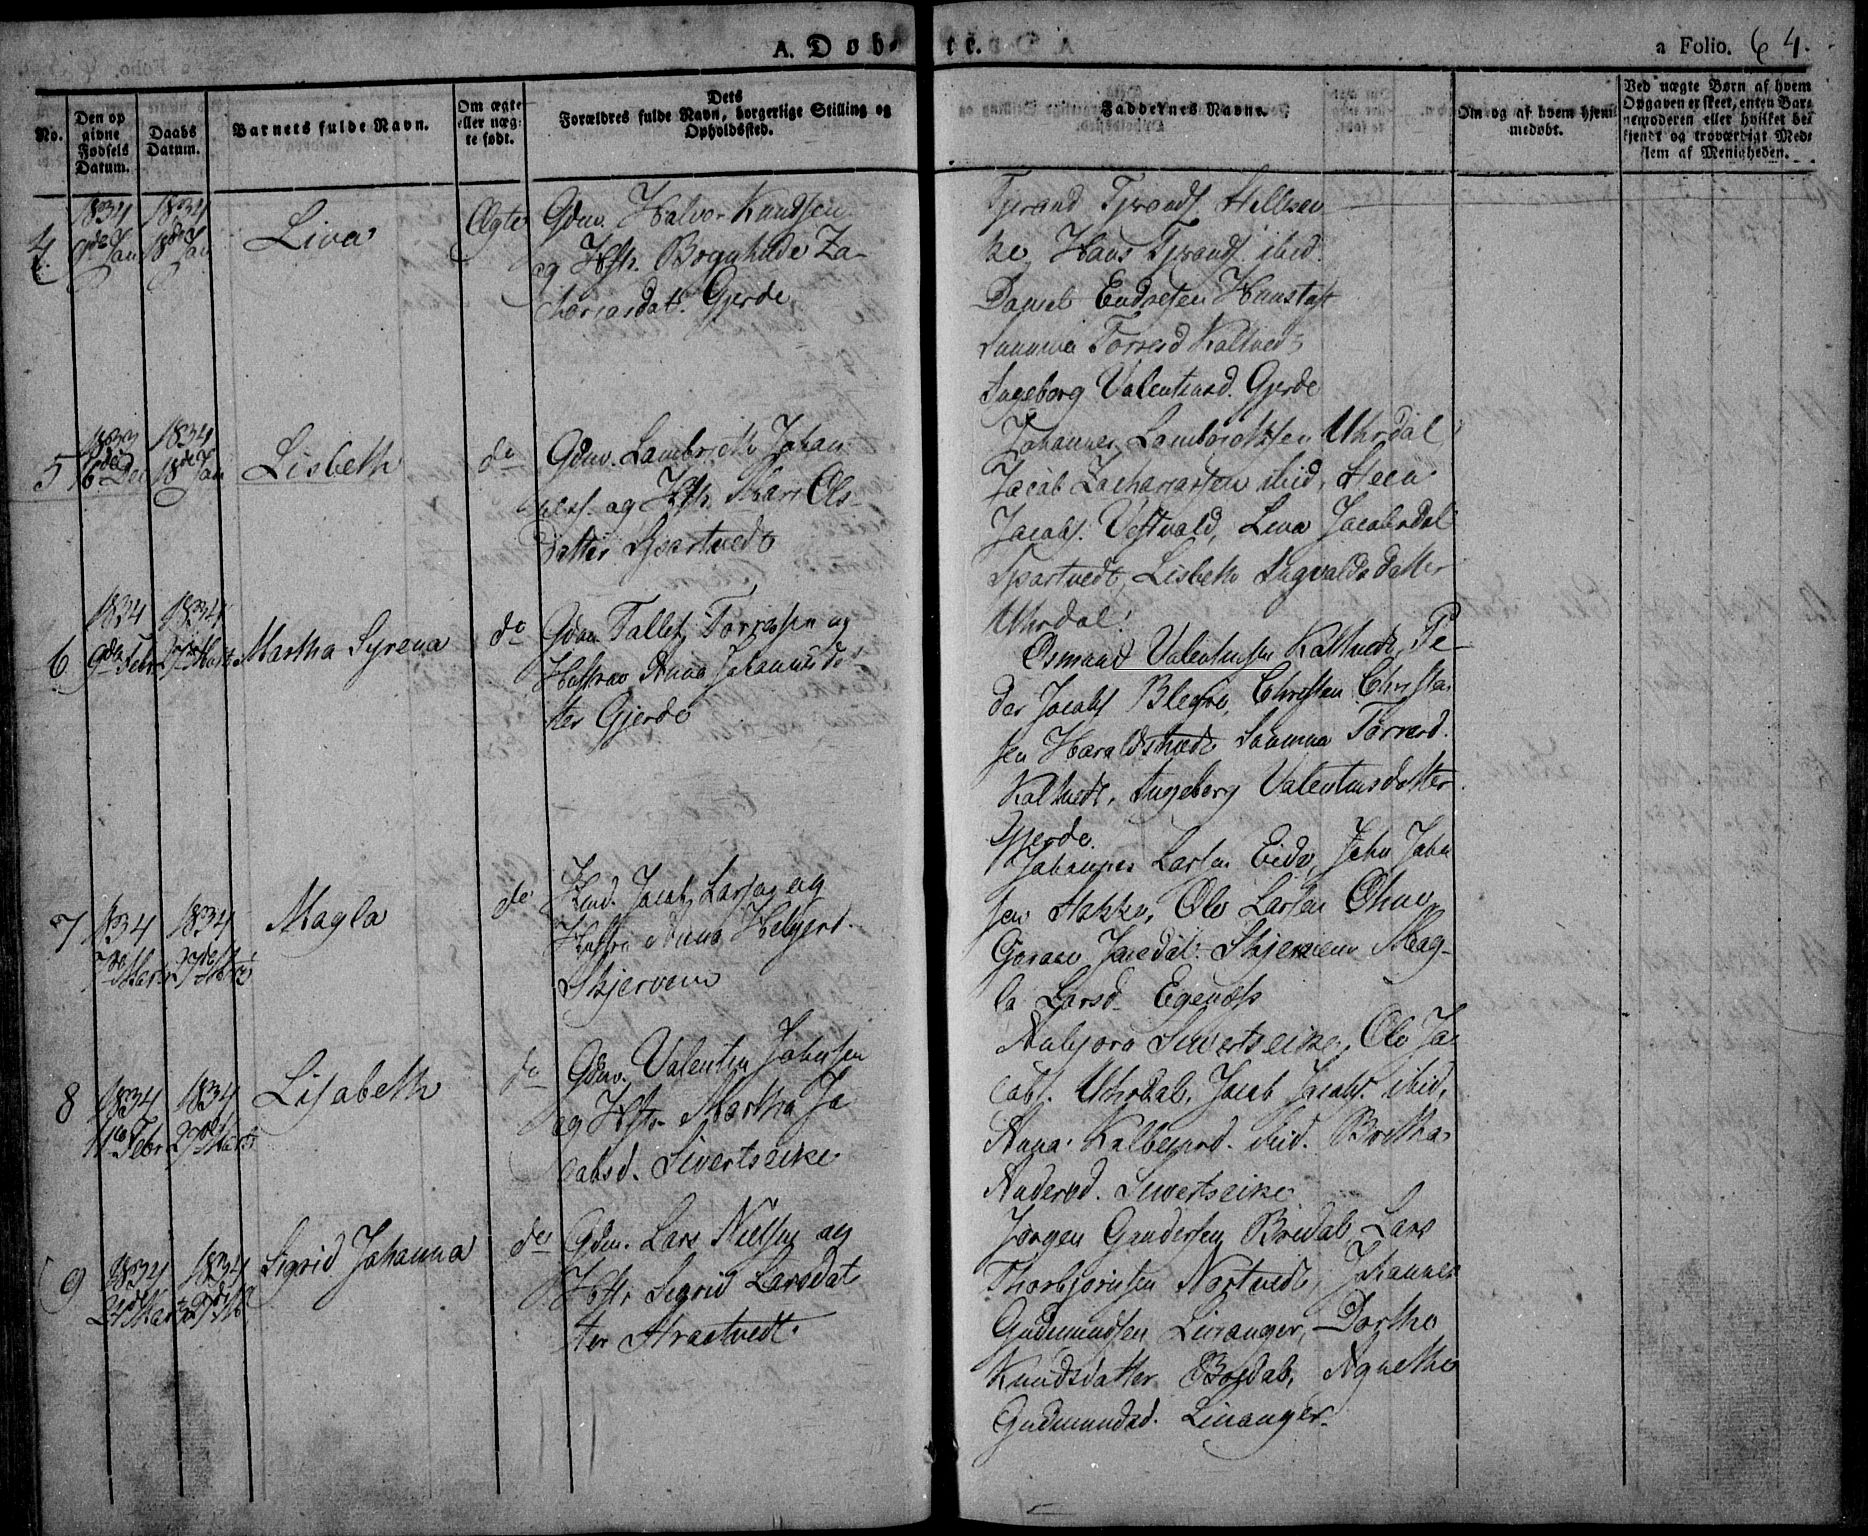 A. Døbte.
a Folio. 64.
No.
Den op
givne
Fødsels
Datum.
Daabs
Datum.
Barnets fulde Navn.
Om ægte
eller uæg-
te født.
Dets
Forældres fulde Navn, borgerlige Stilling og
Opholdssted.
Faddernes Navne.
Om og af hvem hjem-
medøbt.
Ved uægte Børn af hvem
Opgaven er skeet, enten Bar-
nemoderen eller hvilket be-
kjendt og troværdigt Med-
lem af Menigheden.
4
1834
9de Jan
1834
18de Jan
Liva
Ægte
Gdm. Halvor Knudsen
og Hstr. Bragnhilde Za-
chariasdat. Gjerde
Tjerand Tjerands Hellesen
ke, Hans Tjerands. ibid.
Daniel Endresen
Sunniva Torresd Kaltvedt
Ingeborg Valentinsd. Gjerde
5
1833
16de Dec
1834
18de Jan
Lisbeth
do
Gdm. Lambrecth Johan-
nes. og Hstr. Mari Ols-
datter Spartvedt
Johannes Lambrecthsen Uhrdal
Jacob Zachariassen ibid,
Jacobs. Vestvold, Liva Jacobsdat
Spartvedt, Lisbeth Sigvaldsdatter
Uhrdal.
6
1834
9de Febr
1834
27de Marts
Martha Syrena
do
Gdm Tallef Torressen og
Hustrue Anna Johannesdat-
ter Gjerde
Osmund Valentinsen Kaltvedt, Pe-
der Jacobs Blegie, Christen Christen-
sen Haraldstvedt Sunniva Torresd.
Kaltvedt, Ingeborg Valentinsdatter
Gjerde.
7
1834
7de Marts
1834
27de Marts
Magla
do
Jacob Larsen og
Hustr. Anna Helgesd.
Skjervem
Johannes Larsen Eide, John John
sen Stakke, Ole Larsen
Skjervem Mag-
la Larsd. Egenæss
8
1834
11te Febr
1834
27de Marts
Lisabeth
do
Gdm. Valentin Johnsen
og Hstr. Martha Ja
cobsd. Sivertseike
Anbjørn Siwertseike, Ole Ja
cobs. Uhrdal, Jacob Jacobs. ibid,
Anna ibid. Bretha
Andersd. Siwertseike
9
1834
21de Marts
1834
27de Mts
Sigrid Johanna
do
Gdm. Lars Nielsen og
Hstr. Sigrid Larsdat
ter Straatvedt.
Jørgen Gundersen Bredal, Lars
Thorbjørnsen Nortvedt, Johannes
Gudmundsen Linanger, Dorthe
Knudsdatter Bredal, Agnethe
Gudmundsd. Linanger.